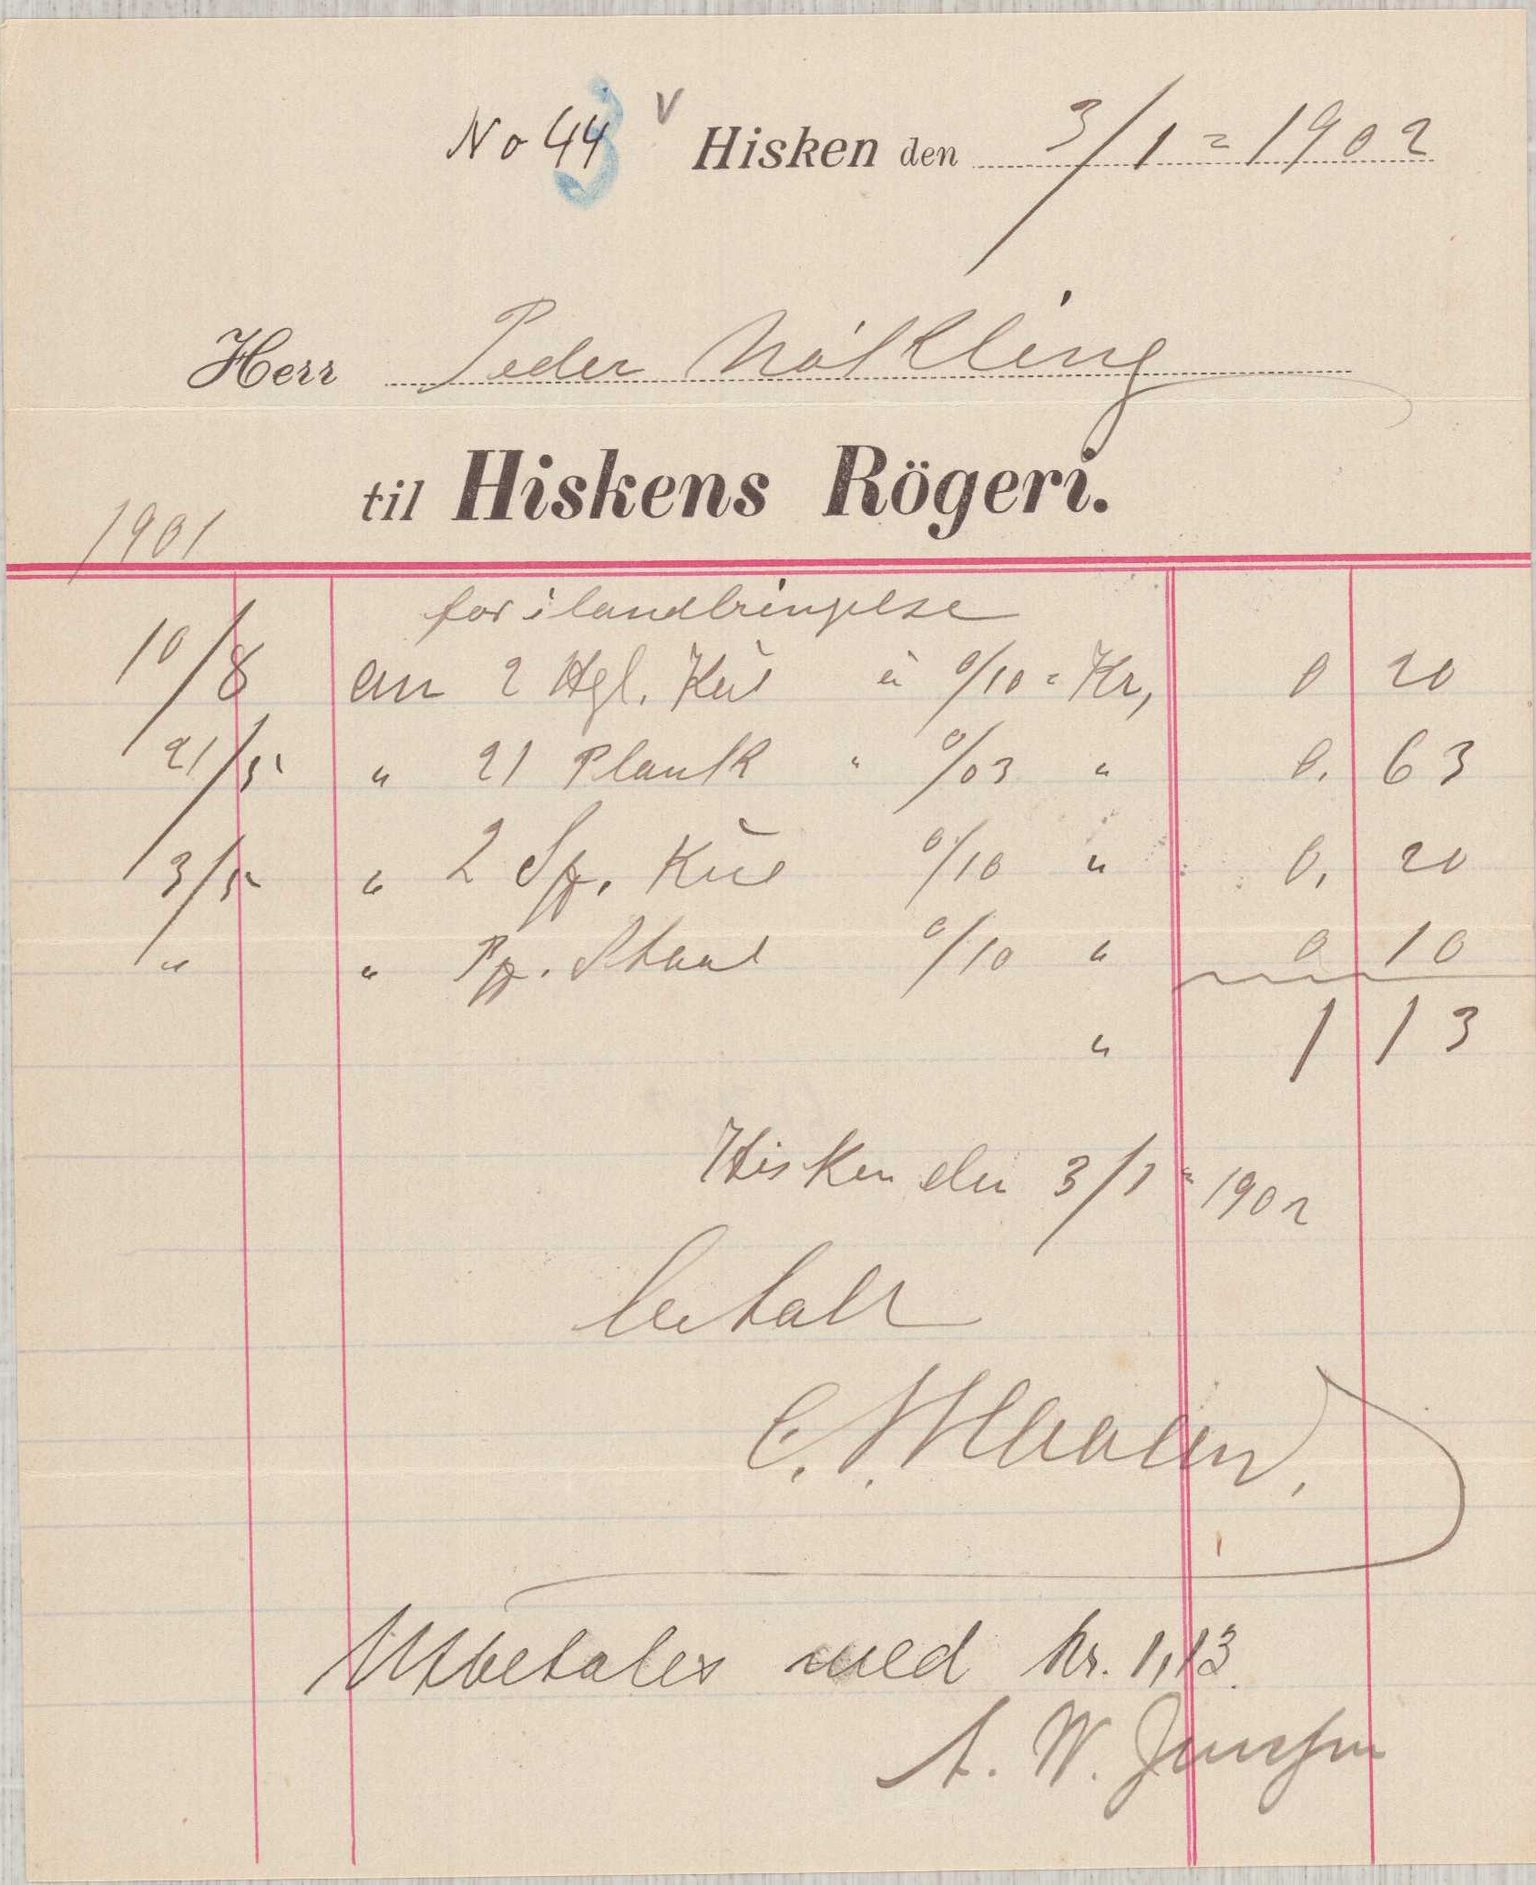 No 44 V Hisken den 3/1 = 1902
Herr Peder Nökling
til Hiskens Rögeri.
1901
for ilandbringelse
10/8 an 2 Hgl. Kul à 0/10 = Kr, 0 20
21/5 " 21 Plank " 0/03 " 0. 63
3/5 " 2 Sk. Kul 0/10 " 0, 20
" " Staal 0/10 " 0 10
" 1 13
Hisken den 3/1 = 1902
betalt
C.
Utbetales med kr. 1,13.
A. W. Jenssen